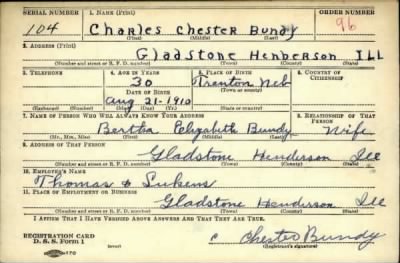 SERIAL NUMBER 1. NAME (Print) ORDER NUMBER
104 Charles Chester Bundy 96
(First) (Middle) (Last)
2. ADDRESS (Print)
Gladstone Henderson ILL
(Number and street or R. F. D. number) (Town) (County) (State)
3. TELEPHONE 4. AGE IN YEARS 5. PLACE OF BIRTH 6. COUNTRY OF CITIZENSHIP
30 Trenton Neb
DATE OF BIRTH (Town or county)
Aug 21-1910
(Exchange) (Number) (Mo.) (Day) (Yr.) (State or country)
7. NAME OF PERSON WHO WILL ALWAYS KNOW YOUR ADDRESS 8. RELATIONSHIP OF THAT PERSON
Bertha Elizabeth Bundy Wife
(Mr., Mrs., Miss) (First) (Middle) (Last)
9. ADDRESS OF THAT PERSON
Gladstone Henderson Ill
(Number and street or R. F. D. number) (Town) (County) (State)
10. EMPLOYER'S NAME
Thomas & Lukens
11. PLACE OF EMPLOYMENT OR BUSINESS
Gladstone Henderson Ill
(Number and street or R. F. D. number) (Town) (County) (State)
I AFFIRM THAT I HAVE VERIFIED ABOVE ANSWERS AND THAT THEY ARE TRUE.
REGISTRATION CARD
D. S. S. Form 1 C Chester Bundy
(Registrant's signature)